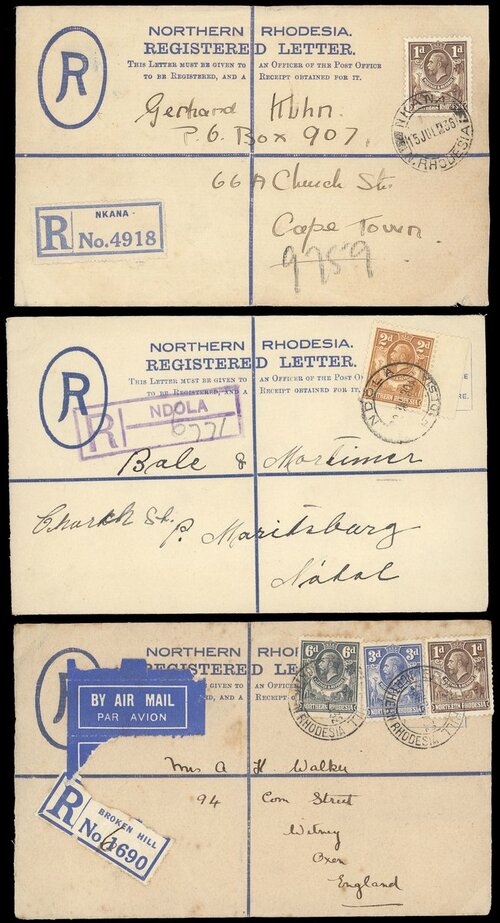 NORTHERN RHODESIA.
REGISTERED LETTER.
THIS LETTER MUST BE GIVEN TO AN OFFICER OF THE POST OFFICE
TO BE REGISTERED, AND A RECEIPT OBTAINED FOR IT.
R
1d 1d
NKANA
15 JUL 36
N. RHODESIA
Gerhard
P.O. Box 907,
66 A Church Str.
Cape Town
9759
NKANA
R No. 4918
NORTHERN RHODESIA.
REGISTERED LETTER.
THIS LETTER MUST BE GIVEN TO AN OFFICER OF THE POST O
TO BE REGISTERED, AND A RE
RE.
R
2d 2d
NORTHERN RHODESIA
NDOLA
NDOLA
R 6771
Bale & Mortimer
Church St. P. Maritzburg
Natal
NORTHERN RHO
REGISTERED LET
GIVEN TO AN OFFICER
ED, AND A RECEIPT
R
6d 6d 3d 3d 1d 1d
NORTHERN RHODESIA
N. RHODESIA
RHODESIA
BY AIR MAIL
PAR AVION
Mrs A H Walker
94 Corn Street
Witney
Oxon
England
BROKEN HILL
R No. 1690
6